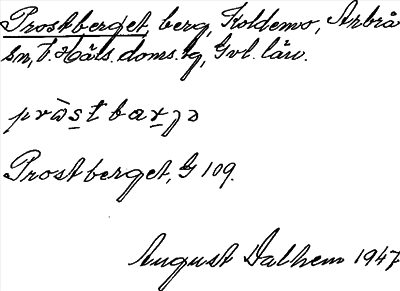 Prostberget, berg, Koldemo, Arbrå
sn, V. Häls. doms. lg, Gvl. län.
pròstbarjə
Prostberget, G 109.
August Dalhem 1947